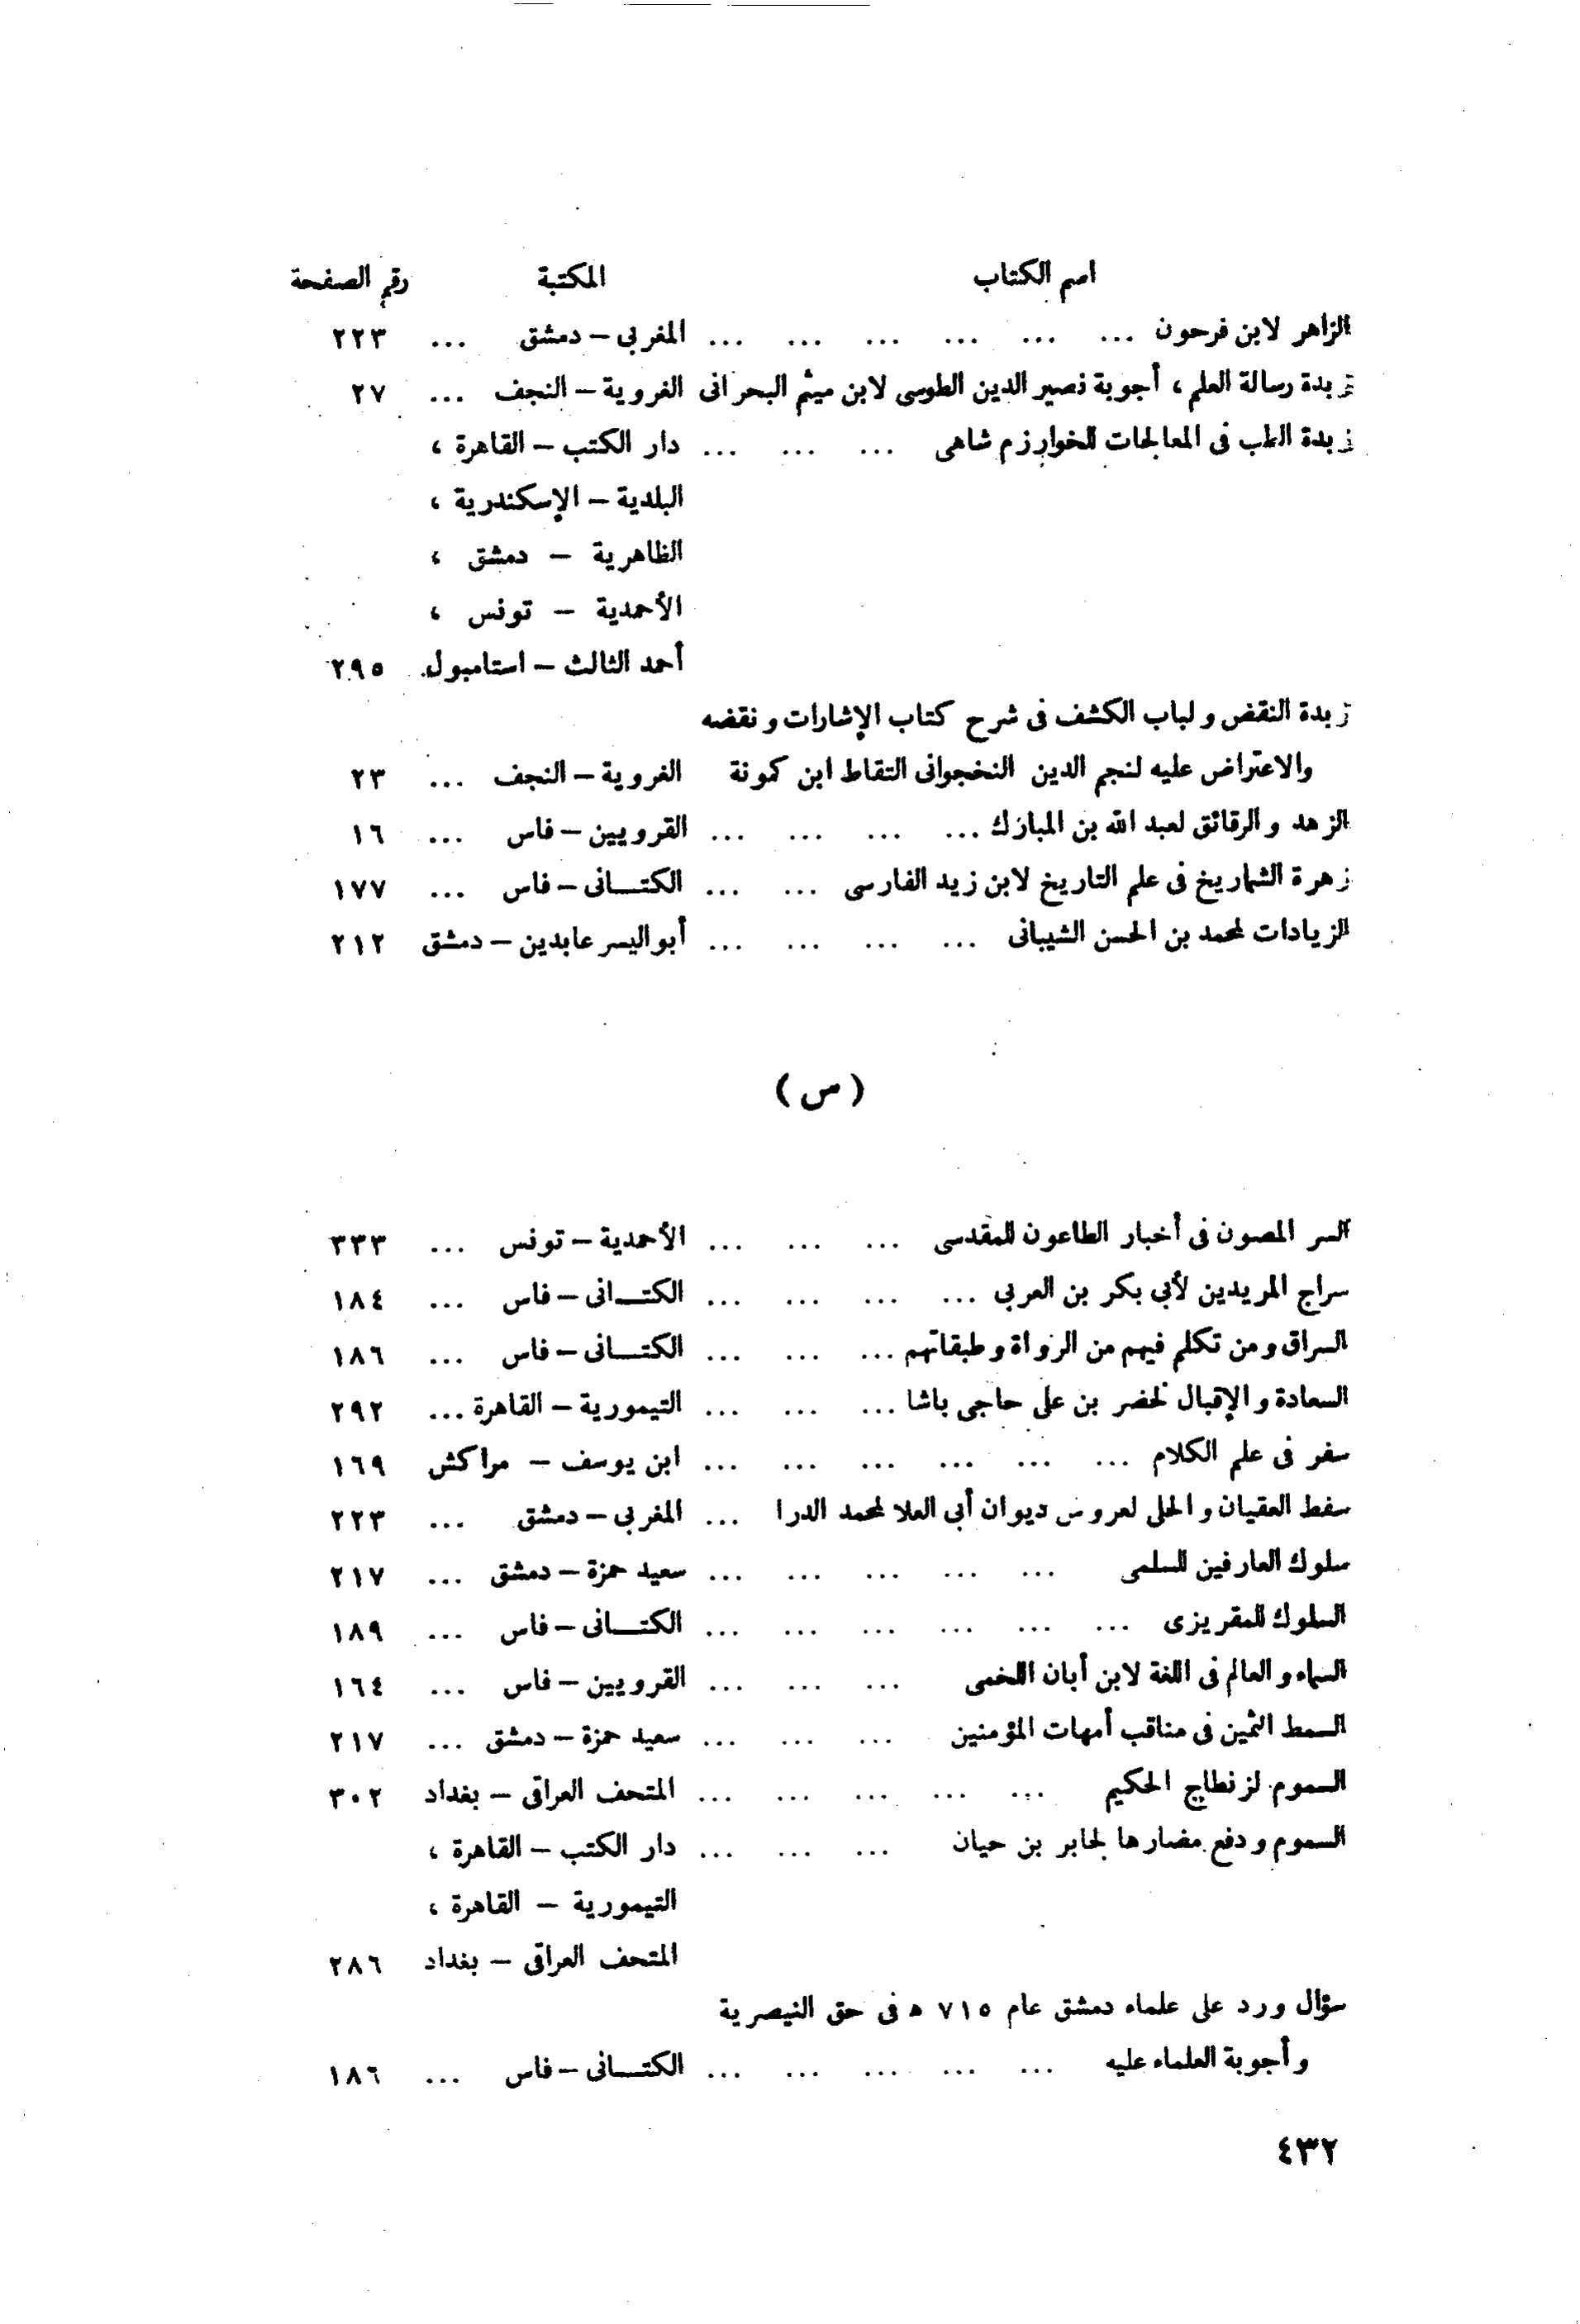 اسم الكتاب المكتبة رقم الصفحة
الزاهر لابن فرحون ... ... ... ... ... ... المغربى – دمشق ... ٢٢٣
زبدة رسالة العلم ، أجوبة نصير الدين الطوسى لابن ميثم البحرانى الغروية – النجف ... ٢٧
زبدة الطب فى المعالجات للخوارزم شاهى ... ... ... دار الكتب – القاهرة ،
البلدية – الإسكندرية ،
الظاهرية – دمشق ،
الأحمدية – تونس ،
أحمد الثالث – استامبول. ٢٩٥
زبدة النقض ولباب الكشف فى شرح كتاب الإشارات ونقضه
والاعتراض عليه لنجم الدين النخجوانى التقاط ابن كمونة الغروية – النجف ... ٢٣
الزهد والرقائق لعبد الله بن المبارك ... ... ... ... القرويين – فاس ... ١٦
زهرة الشماريخ فى علم التاريخ لابن زيد الفارسى ... ... الكتانى – فاس ... ١٧٧
الزيادات لمحمد بن الحسن الشيبانى ... ... ... ... أبو اليسر عابدين – دمشق ٢١٢
( س )
السر المصون فى أخبار الطاعون للمقدسى ... ... ... الأحمدية – تونس ... ٣٣٣
سراج المريدين لأبى بكر بن العربى ... ... ... ... الكتانى – فاس ... ١٨٤
السراق ومن تكلم فيهم من الرواة وطبقاتهم ... ... ... الكتانى – فاس ... ١٨٦
السعادة والإقبال لخضر بن على حاجى باشا ... ... ... التيمورية – القاهرة ... ٢٩٢
سفر فى علم الكلام ... ... ... ... ... ... ابن يوسف – مراكش ١٦٩
سفط العقيان والحلى لعروس ديوان أبى العلا لمحمد الدرا ... المغربى – دمشق ... ٢٢٣
سلوك العارفين للسلمى ... ... ... ... ... سعيد حمزة – دمشق ... ٢١٧
السلوك للمقريزى ... ... ... ... ... ... الكتانى – فاس ... ١٨٩
السماء والعالم فى اللغة لابن أبان اللخمى ... ... ... القرويين – فاس ... ١٦٤
السمط الثمين فى مناقب أمهات المؤمنين ... ... ... سعيد حمزة – دمشق ... ٢١٧
السموم لزنطاح الحكيم ... ... ... ... ... المتحف العراقى – بغداد ٣٠٢
السموم ودفع مضارها لجابر بن حيان ... ... ... دار الكتب – القاهرة ،
التيمورية – القاهرة ،
المتحف العراقى – بغداد ٢٨٦
سؤال ورد على علماء دمشق عام ٧١٥ ه فى حق النيصرية
وأجوبة العلماء عليه ... ... ... ... ... الكتانى – فاس ... ١٨٦
٤٣٢